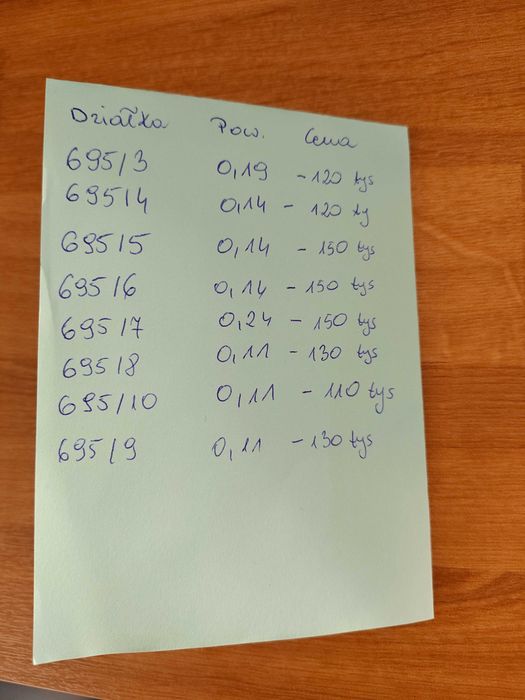 Działka Pow. Cena
695/3 0,19 - 120 tys
695/4 0,14 - 120 ty
695/5 0,14 - 150 tys
695/6 0,14 - 150 tys
695/7 0,24 - 150 tys
695/8 0,11 - 130 tys
695/10 0,11 - 110 tys
695/9 0,11 - 130 tys